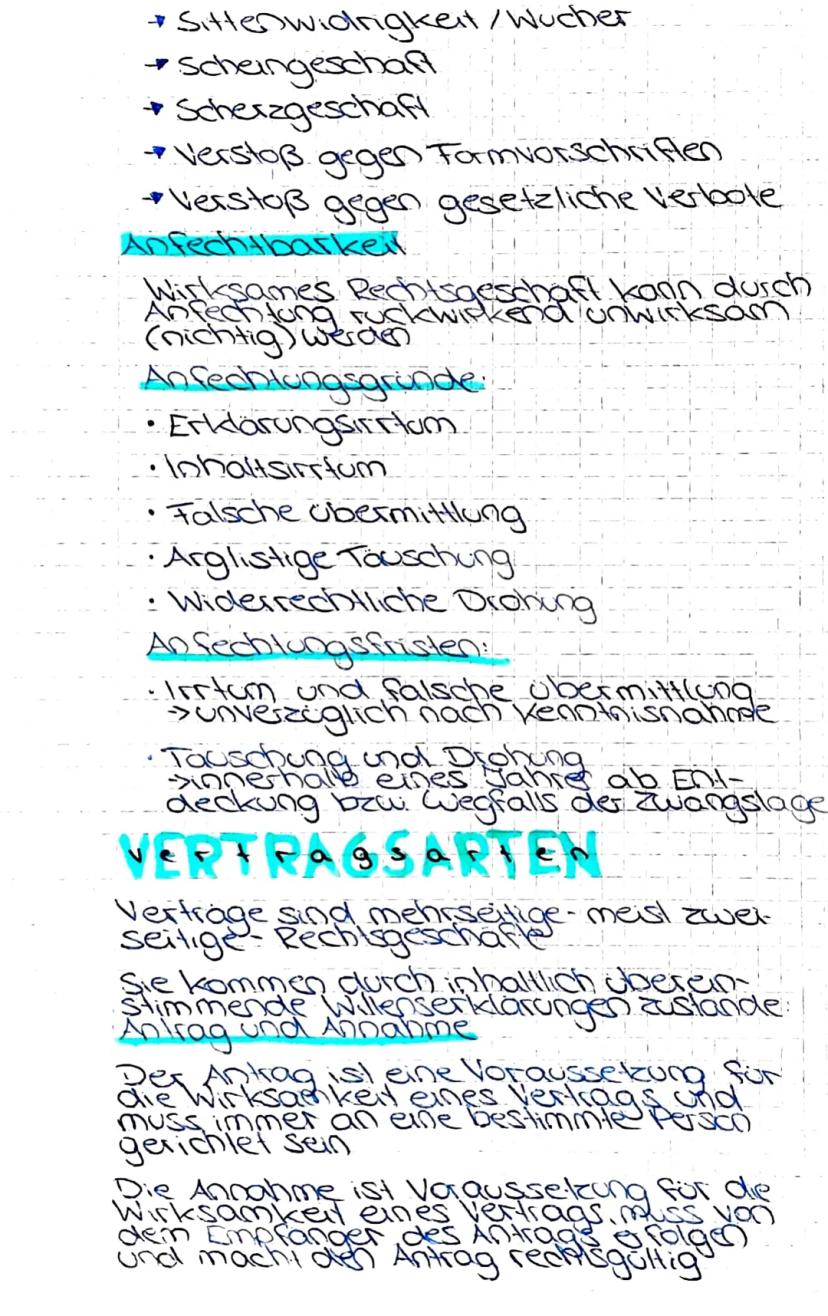 → Sittenwidrigkeit / Wucher
→ Scheingeschäft
→ Scherzgeschäft
→ Verstoß gegen Formvorschriften
→ Verstoß gegen gesetzliche Verbote
Anfechtbarkeit
Wirksames Rechtsgeschäft kann durch
Anfechtung rückwirkend unwirksam
(nichtig) werden
Anfechtungsgründe:
• Erklärungsirrtum
• Inhaltsirrtum
• Falsche Übermittlung
• Arglistige Täuschung
• Widerrechtliche Drohung
Anfechtungsfristen:
• Irrtum und falsche Übermittlung
→ unverzüglich nach Kenntnisnahme
• Täuschung und Drohung
→ innerhalb eines Jahres ab Ent-
deckung bzw. Wegfalls der Zwangslage
VERTRAGSARTEN
Verträge sind mehrseitige - meist zwei-
seitige - Rechtsgeschäfte
Sie kommen durch inhaltlich überein-
stimmende Willenserklärungen zustande:
Antrag und Annahme
Der Antrag ist eine Voraussetzung für
die Wirksamkeit eines Vertrags und
muss immer an eine bestimmte Person
gerichtet sein
Die Annahme ist Voraussetzung für die
Wirksamkeit eines Vertrags, muss von
dem Empfänger des Antrags erfolgen
und macht den Antrag rechtsgültig